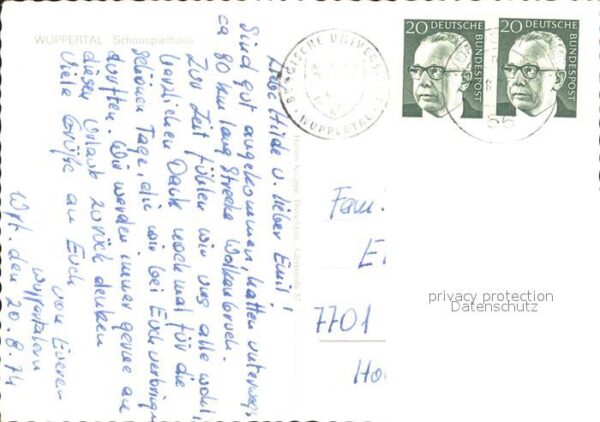 WUPPERTAL Schauspielhaus
Liebe Hilde u. lieber Emil!
Sind gut angekommen, hatten unterwegs
ca 80 km lang Strecke Wolkenbruch.
Zur Zeit fühlen wir uns alle wohl,
herzlichen Dank nochmal für die
schönen Tage, die wir bei Euch verbringen
durften. Wir werden immer gerne an
diesen Urlaub zurück denken
Viele Grüße an Euch
von Eueren
Wuppertalern
Wpt. den 20.8.74
BERGISCHE UNIVERSI
WUPPERTAL
20 DEUTSCHE
BUNDESPOST
20 DEUTSCHE
BUNDESPOST
56
Fam.
E
7701
Ho
privacy protection
Datenschutz